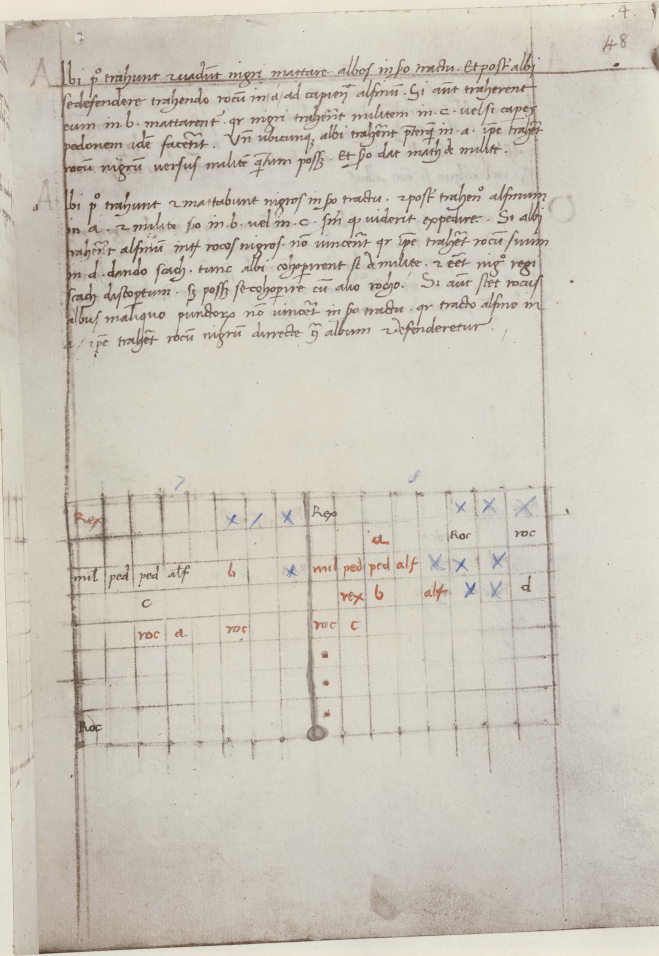 .4.
48
lbi p° trahunt ⁊ vadūt nigri mattare albos in s̄o tractu. Et post albi
se defendere trahendo rocū in a ad capien alfinū. Si aūt traherent
eum in b. mattarent qr nigri traherēt militem in c. vel si caperet
pedonem idē facerēt. Un ubicunqꝫ albi trahent in a. ipe traheret
rocū nigrū versus militē posset. Et dat math de milite.
lbi p° trahunt ⁊ mattabunt nigros in s̄o tractu. ⁊ post alfinum
in a. ⁊ milite in b. vel in c. viderit expedire. Si albi
traherēt alfinū int rocos nigros nō vincerēt qr ipe traheret rocū suum
in d. dando scach. tunc albi cohoperirent se milite. ⁊ eet nigro regi
scach discoptum. posset se cohoperire cū alio rocho. Si aūt stet rocus
albus in aliquo punctorꝝ nō vincēt in s̄o tractu. qr tracto alfino in
a/ ipe traheret rocū nigrū directe album ⁊ defenderetur
7 8
Rex x / x Rex x x x
a Roc roc
mil ped ped alf b x mil ped ped alf x x x
c rex b alf x x d
roc a roc roc c
Roc